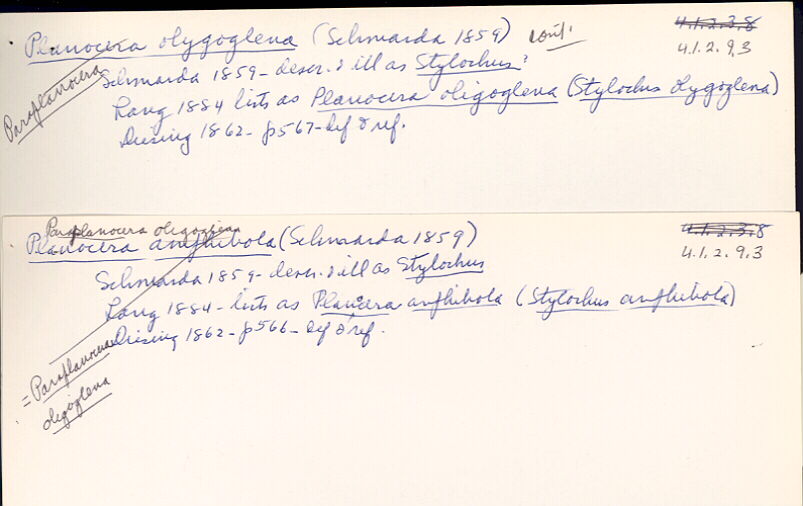 Planocera olygoglena (Schmarda 1859) cont. 4.1.2.3.8
4.1.2.9.3
Paraplanocera
Schmarda 1859 - descr. & ill as Stylochus.
Lang 1884 lists as Planocera oligoglena (Stylochus olygoglena)
Diesing 1862 - p567 - def & ref.
Paraplanocera oligoglena
Planocera amphibola (Schmarda 1859) 4.1.2.3.8
4.1.2.9.3
Schmarda 1859 - descr. & ill as Stylochus
Lang 1884 - lists as Planocera amphibola (Stylochus amphibola)
Diesing 1862 - p566 - def & ref.
= Paraplanocera
oligoglena